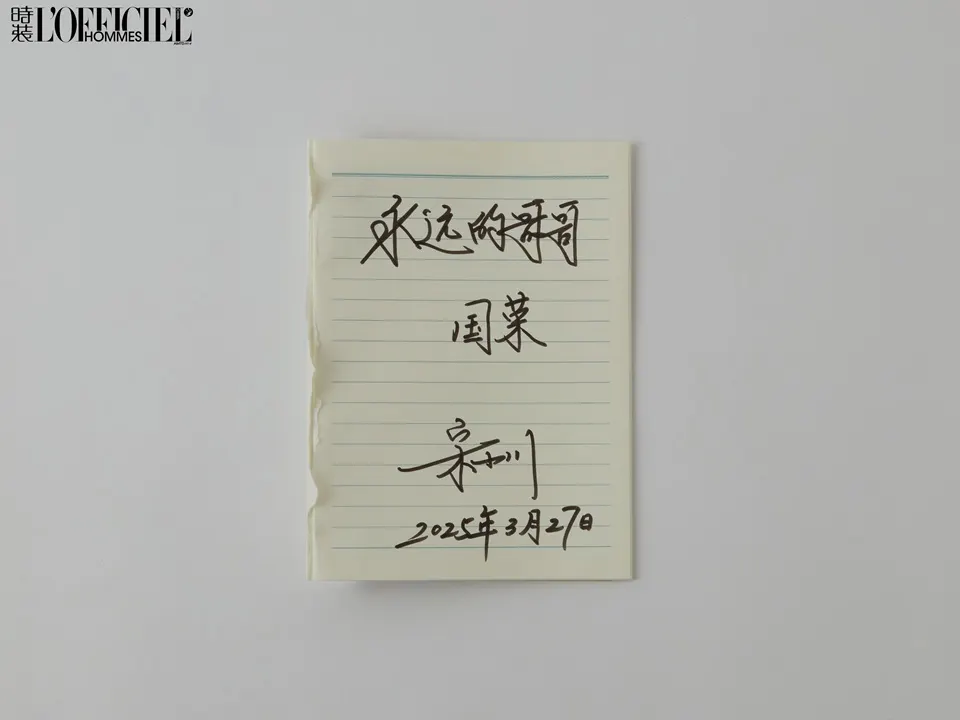 時裝 L'OFFICIEL HOMMES
永远的哥哥
国荣
2025年3月27日